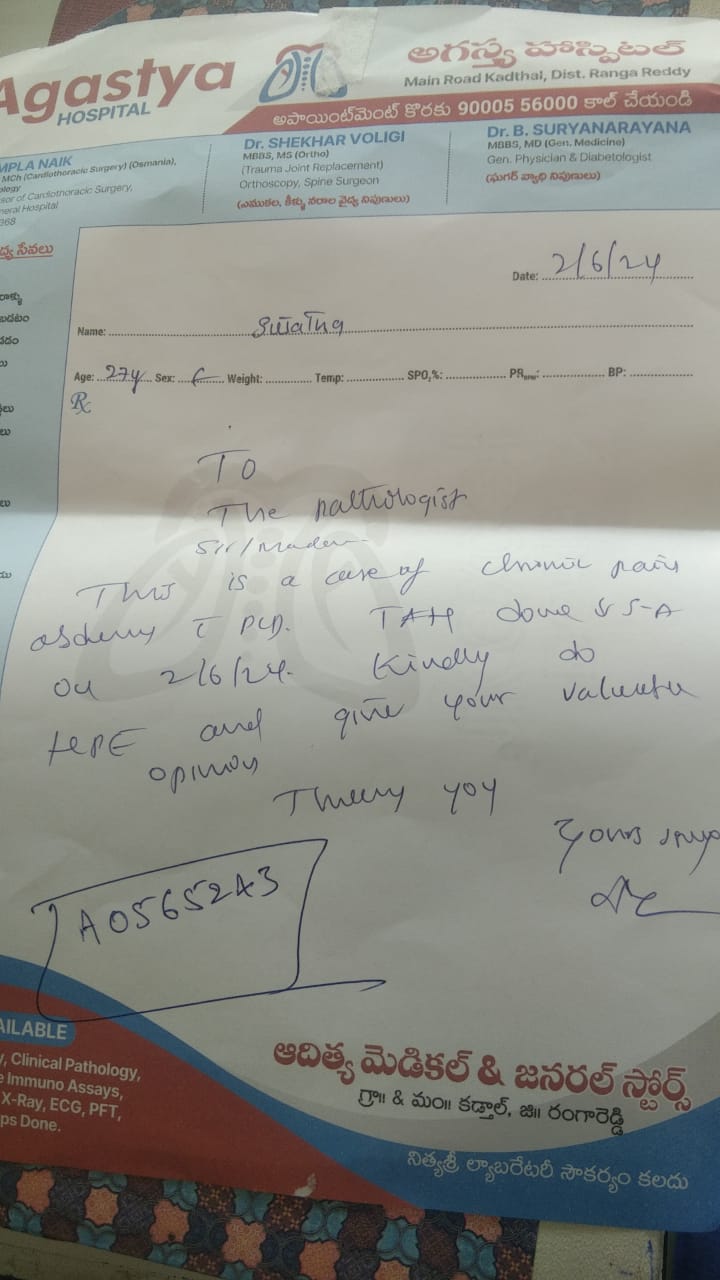 Agastya
HOSPITAL
అగస్త్య హాస్పిటల్
Main Road Kadthal, Dist. Ranga Reddy
అపాయింట్‌మెంట్ కొరకు 90005 56000 కాల్ చేయండి
MPLA NAIK
MCh (Cardiothoracic Surgery) (Osmania),
ology
sor of Cardiothoracic Surgery,
neral Hospital
368
Dr. SHEKHAR VOLIGI
MBBS, MS (Ortho)
(Trauma Joint Replacement)
Orthoscopy, Spine Surgeon
(ఎముకల, కీళ్ళు నరాల వైద్య నిపుణులు)
Dr. B. SURYANARAYANA
MBBS, MD (Gen. Medicine)
Gen. Physician & Diabetologist
(షుగర్ వ్యాధి నిపుణులు)
ద్య సేవలు
Date: 2/6/24
Name:
Age: 27y Sex: F Weight: Temp: SPO₂%: PR BPM: BP:
Rx
To
The pathologist
Sir/Madam
This is a case of chronic pain
c PID. TAH done & S-A
on 2/6/24. Kindly do
HPE and give your valuable
opinion
Thank you
Yours
A0565243
AILABLE
, Clinical Pathology,
e Immuno Assays,
X-Ray, ECG, PFT,
ps Done.
ఆదిత్య మెడికల్ & జనరల్ స్టోర్స్
గ్రా॥ & మం॥ కడ్తాల్, జి॥ రంగారెడ్డి
నిత్యశ్రీ ల్యాబరేటరీ సౌకర్యం కలదు